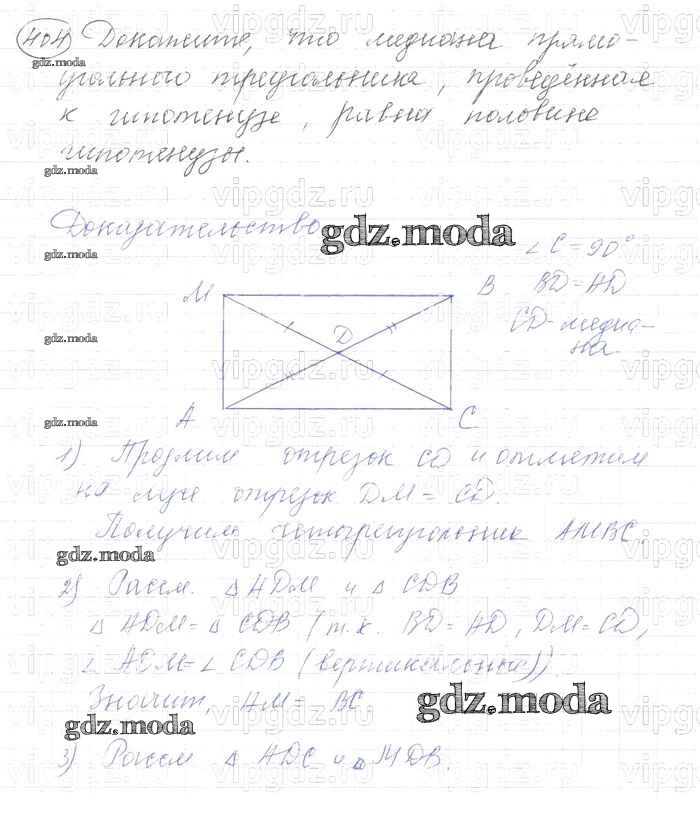 404 Докажите, что медиана прямо-
gdz.moda
угольного треугольника, проведённая
к гипотенузе, равна половине
гипотенузы.
gdz.moda
Доказательство
gdz.moda
∠ C = 90°
gdz.moda
M
B
BD = AD
CD - медиа-
на
D
gdz.moda
A
C
gdz.moda
1) Продлим отрезок CD и отметим
на луче отрезок DM = CD.
Получили четырехугольник AMBC.
gdz.moda
2) Рассм. △ ADM и △ CDB
△ ADM = △ CDB (т.к. BD = AD, DM = CD,
∠ ADM = ∠ CDB (вертикальные)).
Значит, AM = BC
gdz.moda
gdz.moda
3) Рассм △ ADC и △ MDB.
vipgdz.ru